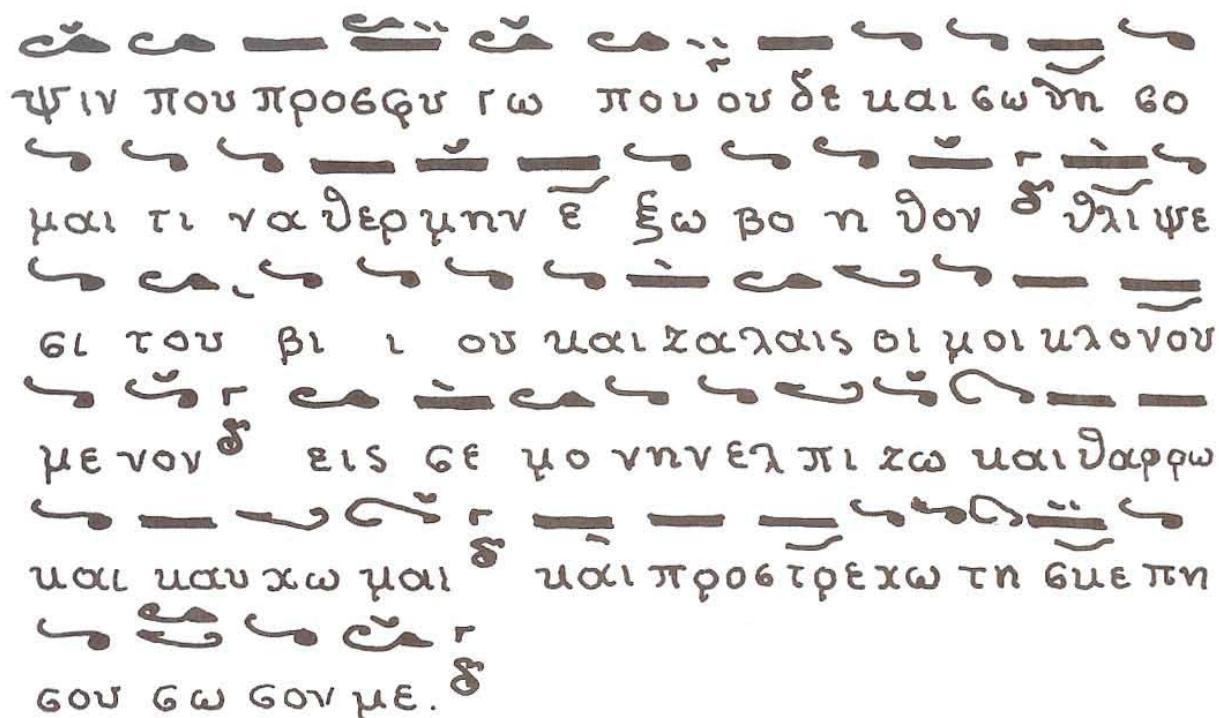 ψιν που προσφυ γω που ου δε και σω θη σο
μαι τι να θερ μην ε ξω βο η θον δ θλι ψε
σι του βι ι ου και ζα λαις οι μοι κλο νου
με νον δ εις σε μο νην ελ πι ζω και θαρ ρω
και καυ χω μαι δ και προσ τρε χω τη σκε πη
σου σω σον με. δ